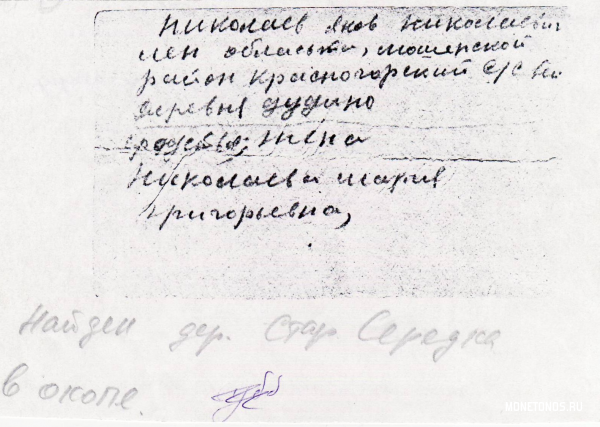 Николаев Яков Николаевич
лен область, мошенской
район Красногорский с/с
деревня дудино
жена
Николаева мария
григорьевна,
Найден дер. Стар. Середка
в окопе.
MONETONOS.RU